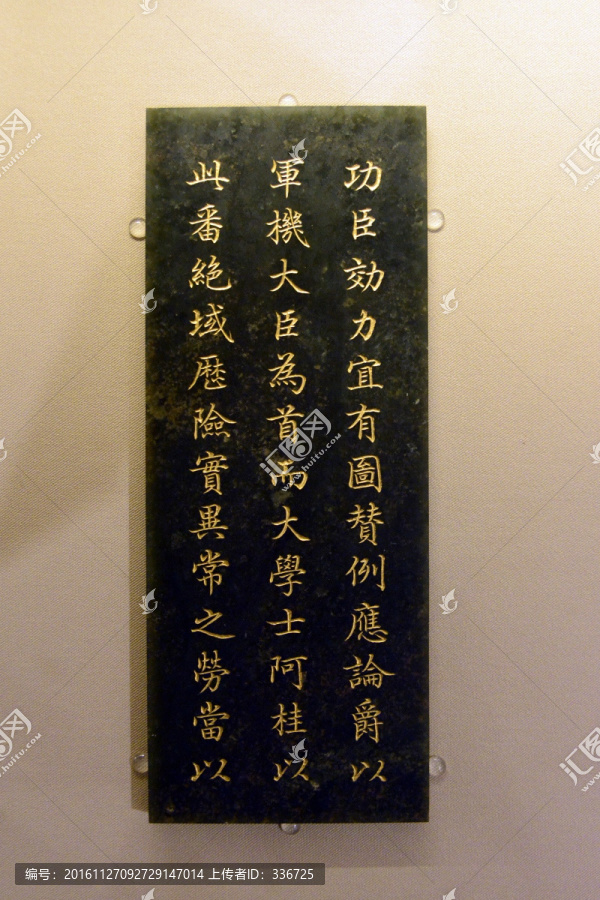 功臣効力宜有圖賛例應論爵以
軍機大臣為首而大學士阿桂以
此番絶域歷險實異常之勞當以
汇图网
www.huitu.com
编号：20161127092729147014 上传者ID：336725